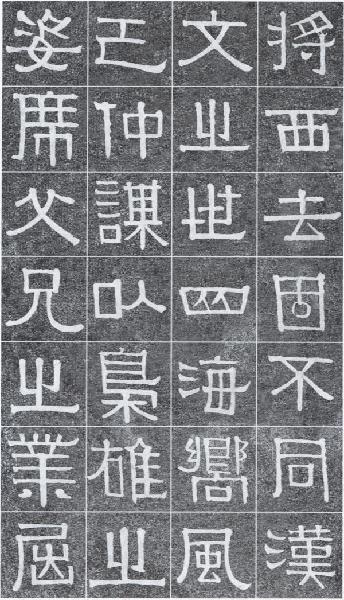 將西去固不同漢
文之世四海嚮風
正仲謀以梟雄之
姿席父兄之業屈